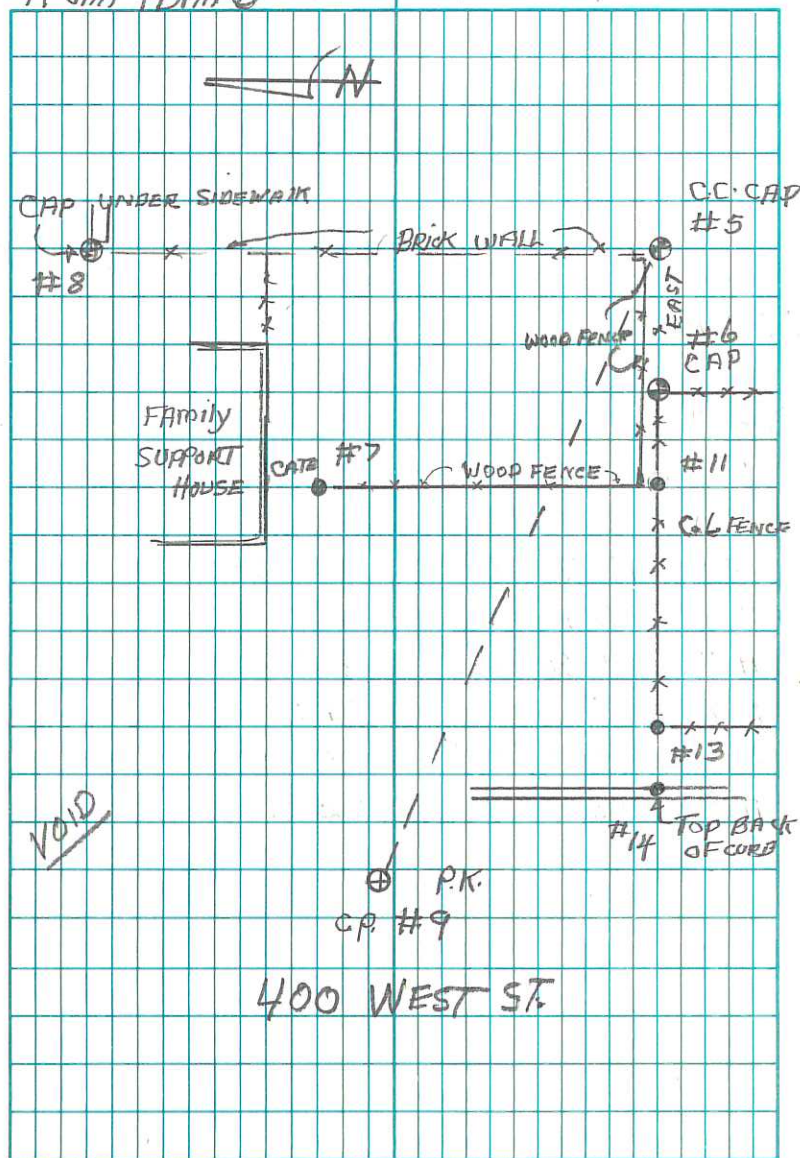 N
C.C. CAP
#5
CAP UNDER SIDEWALK
#8
BRICK WALL
EAST
WOOD FENCE
#6
CAP
FAmily
SUPPORT
HOUSE
GATE
#7
WOOD FENCE
#11
C.L FENCE
#13
#14
TOP BACK
OF CURB
VOID
P.K.
C.P. #9
400 WEST ST.